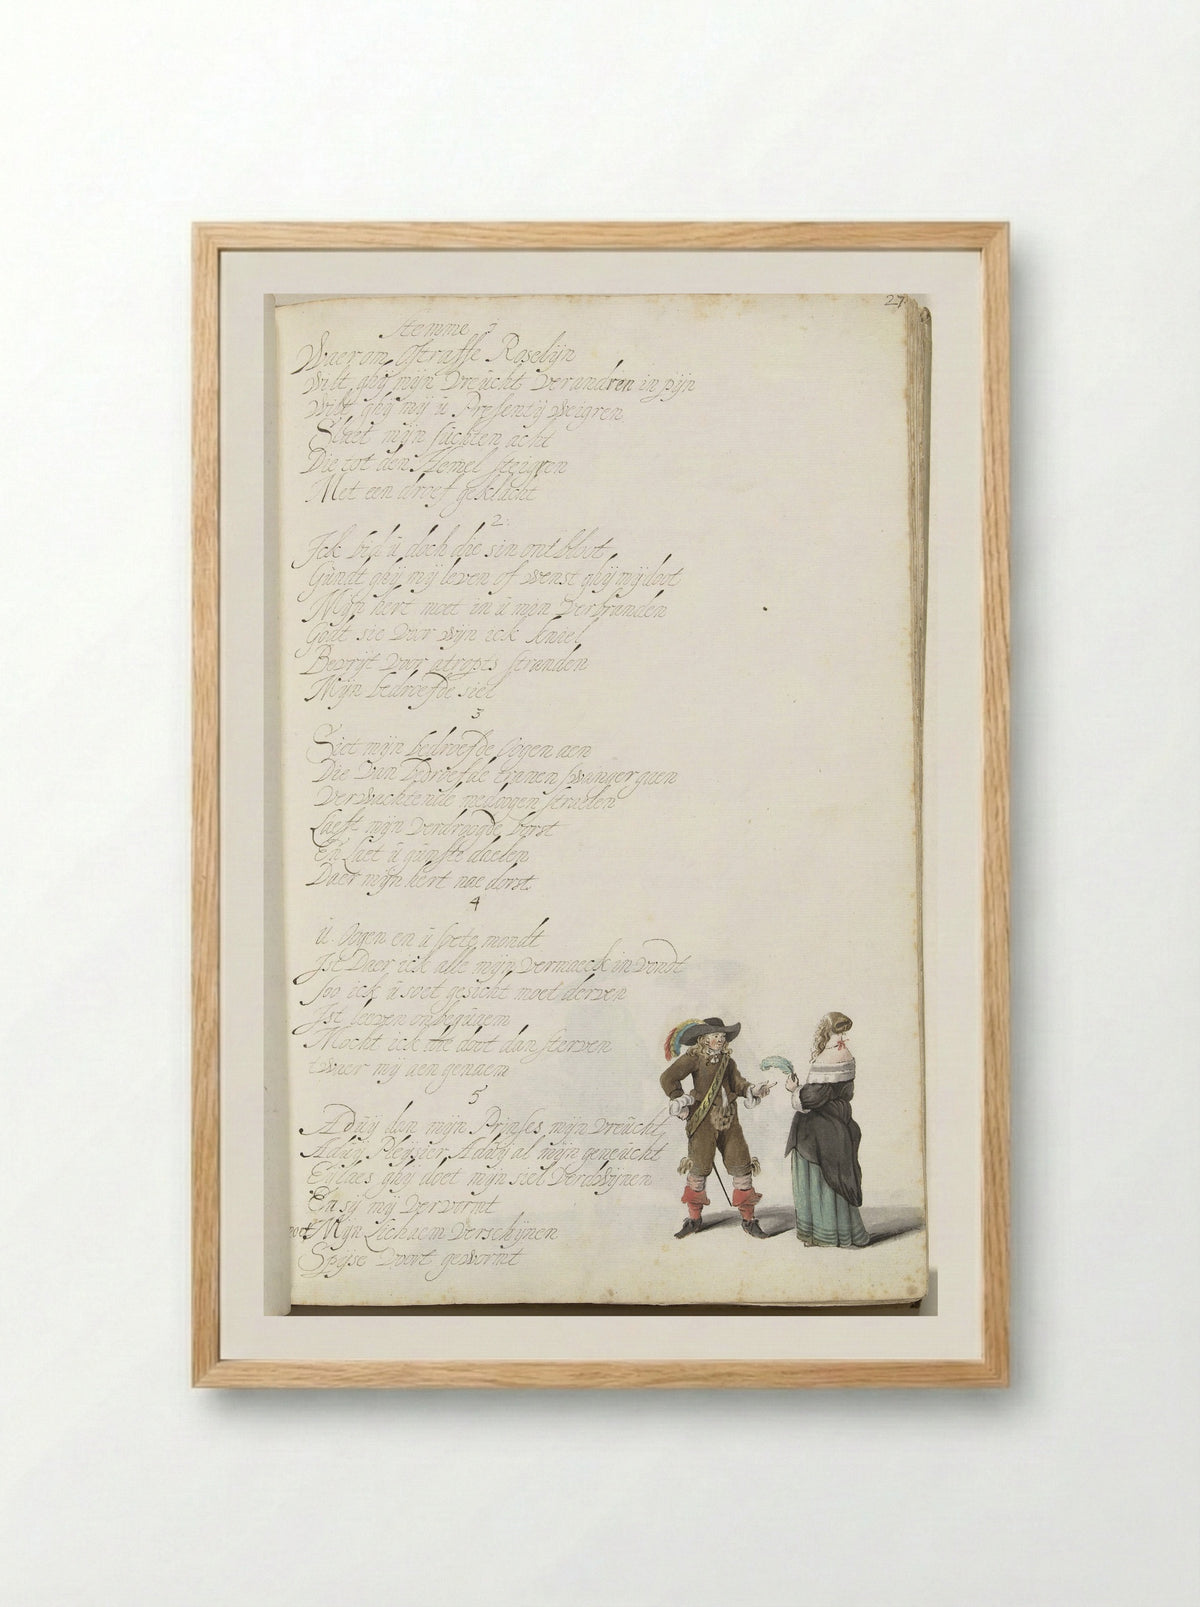 27
Stemme 1
Waerom Straffe Roselijn
Wilt ghij mijn vreucht verandren in pijn
Wilt ghij mij u Presentij weigren
Slaet mijn suchten acht
Die tot den Hemel steigren
Met een droef geklacht
2:
Ick bid u doch die sin ontbloot
Gundt ghij mij leven of wenst ghij mij doot
Mijn hert moet in u min verbranden
Godt sie voor wijn ick kniel
Bevrijt voor atropos stranden
Mijn bedroefde siel
3
Siet mijn bedroefde Oogen aen
Die van bedroefde tranen swanger gaen
Verwachtende medoogen straelen
Laeft mijn verdroogde borst
En Laet u gunste daelen
Daer mijn hert nae dorst
4
u Oogen en u soete mondt
Ist Daer ick alle mijn vermaeck in vondt
soo ick u soet gesicht moet derven
Ist leeven onbequaem
Mocht ick die doot dan sterven
twaer mij aengenaem
5
Aduij dan mijn Prinses mijn vreucht
Aduij Pleijsier Aduij al mijn geneucht
ghij doet mijn siel verdwijnen
En sij mij vervormt
moet Mijn Lichaem verschijnen
Spijse voort gewormt